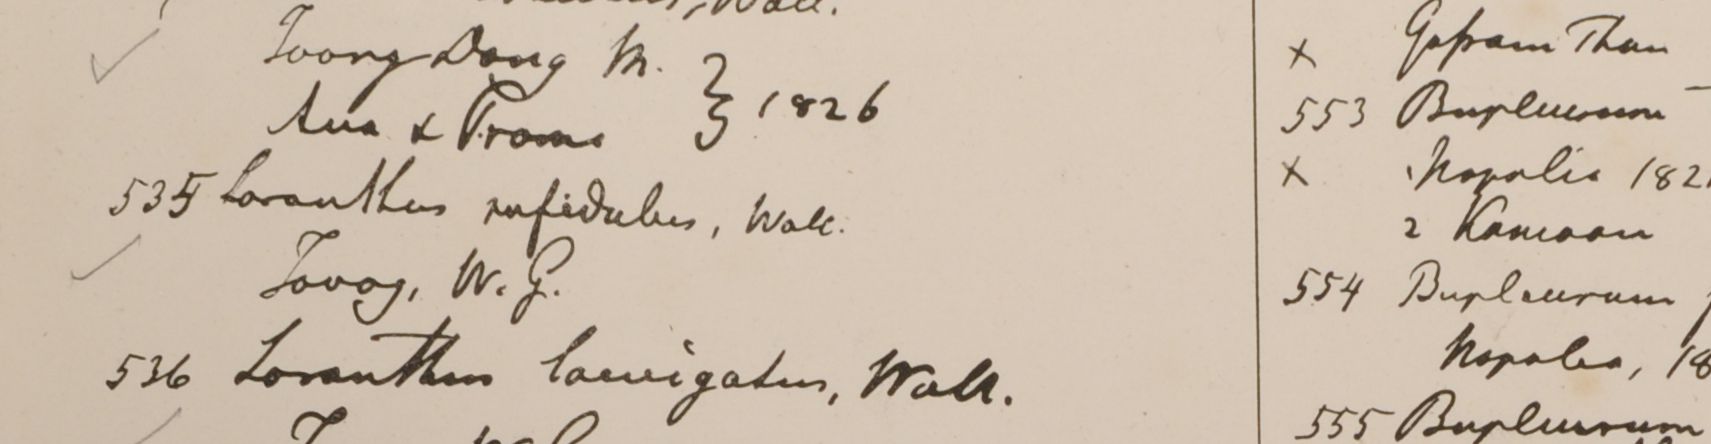 Wall.
Toong Dong M.
Ava & Prome } 1826
535 Loranthus rufidulus, Wall.
Tavoy, W. G.
536 Loranthus laevigatus, Wall.
x
553 Bupleurum
x Napalia 182
2 Kamaon
554 Bupleurum
Napalia, 18
555 Bupleurum